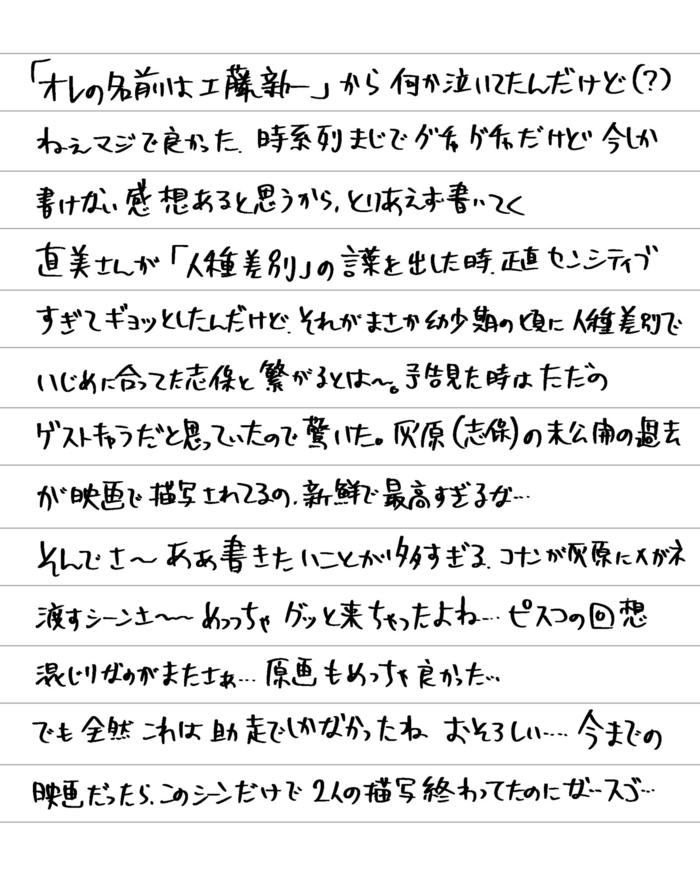 「オレの名前は工藤新一」から何か泣いてたんだけど(?)
ねぇマジで良かった、時系列まじでグチャグチャだけど今しか
書けない感想あると思うから、とりあえず書いてく
直美さんが「人種差別」の言葉を出した時、正直センシティブ
すぎてギョッとしたんだけど、それがまさか幼少期の頃に人種差別で
いじめに合ってた志保と繋がるとは〜。予告見た時はただの
ゲストキャラだと思っていたので驚いた。灰原(志保)の未公開の過去
が映画で描写されてるの、新鮮で最高すぎるな…
そんでさ〜ああ書きたいことが多すぎる、コナンが灰原にメガネ
渡すシーンさ〜〜めっっちゃグッと来ちゃったよね…ピスコの回想
混じりなのがまたさぁ…原画もめっちゃ良かった…
でも全然これは助走でしかなかったね おそろしい…今までの
映画だったら、このシーンだけで2人の描写終わってたのにな…スゴ…